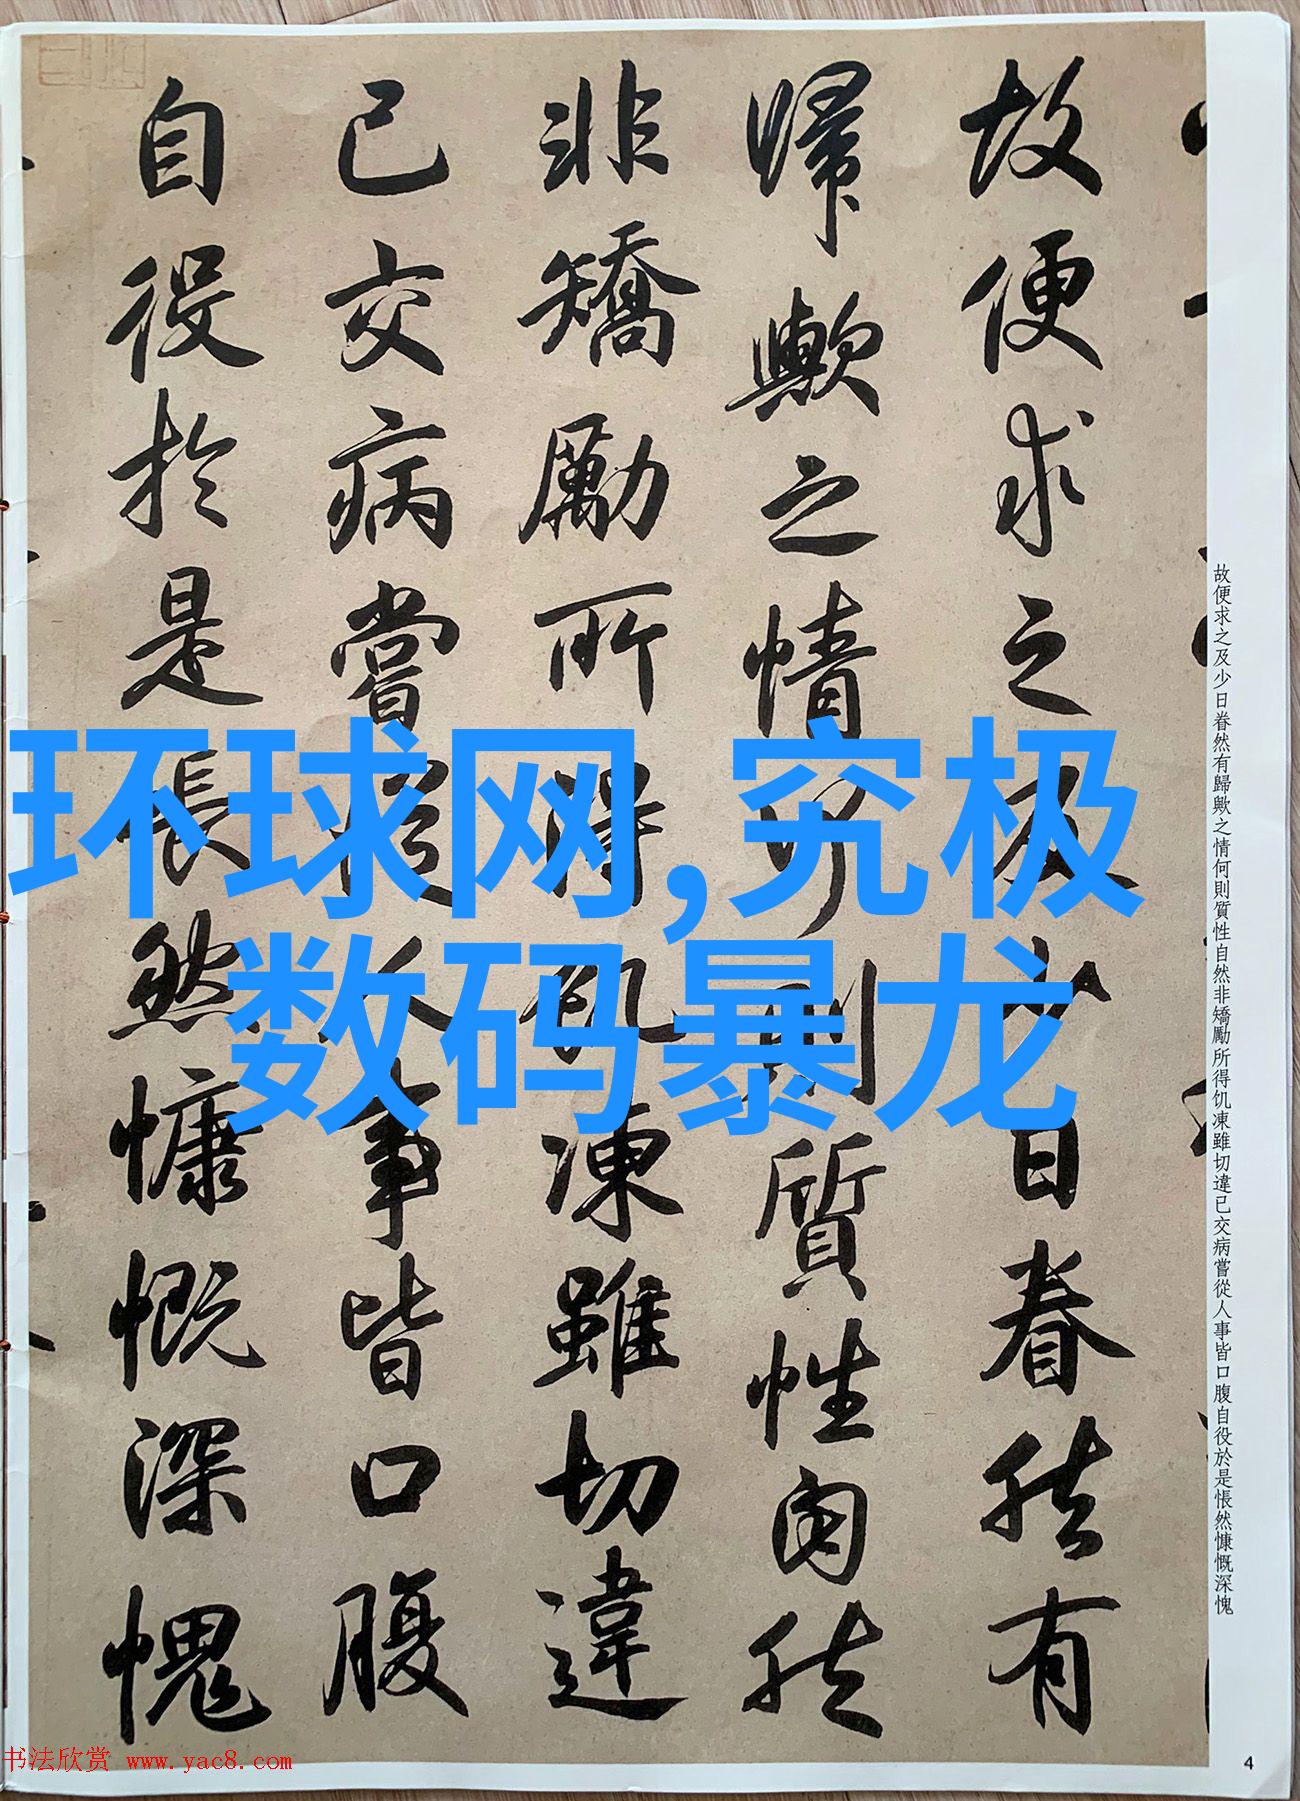 环球网,究极
数码暴龙
故便求之及少日眷然有
歸歟之情何則質性自然
非矯勵所得飢凍雖切違
已交病嘗從人事皆口腹
自役於是悵然慷慨深愧
故便求之及少日眷然有歸歟之情何則質性自然非矯勵所得饥凍雖切違已交病嘗從人事皆口腹自役於是悵然慷慨深愧
4
书法欣赏 www.yac8.com